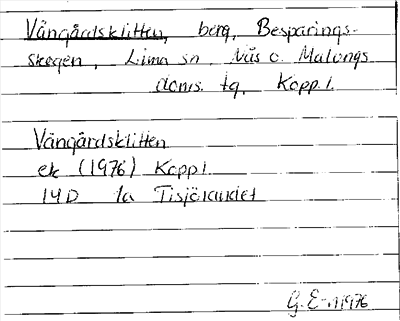 Vångårdsklitten, berg, Besparings-
skogen, Lima sn, Näs o. Malungs
doms. tg, Kopp. l.
Vångårdsklitten
ek (1976) Kopp l.
14D 1a Tisjölandet
G. E-n 1976